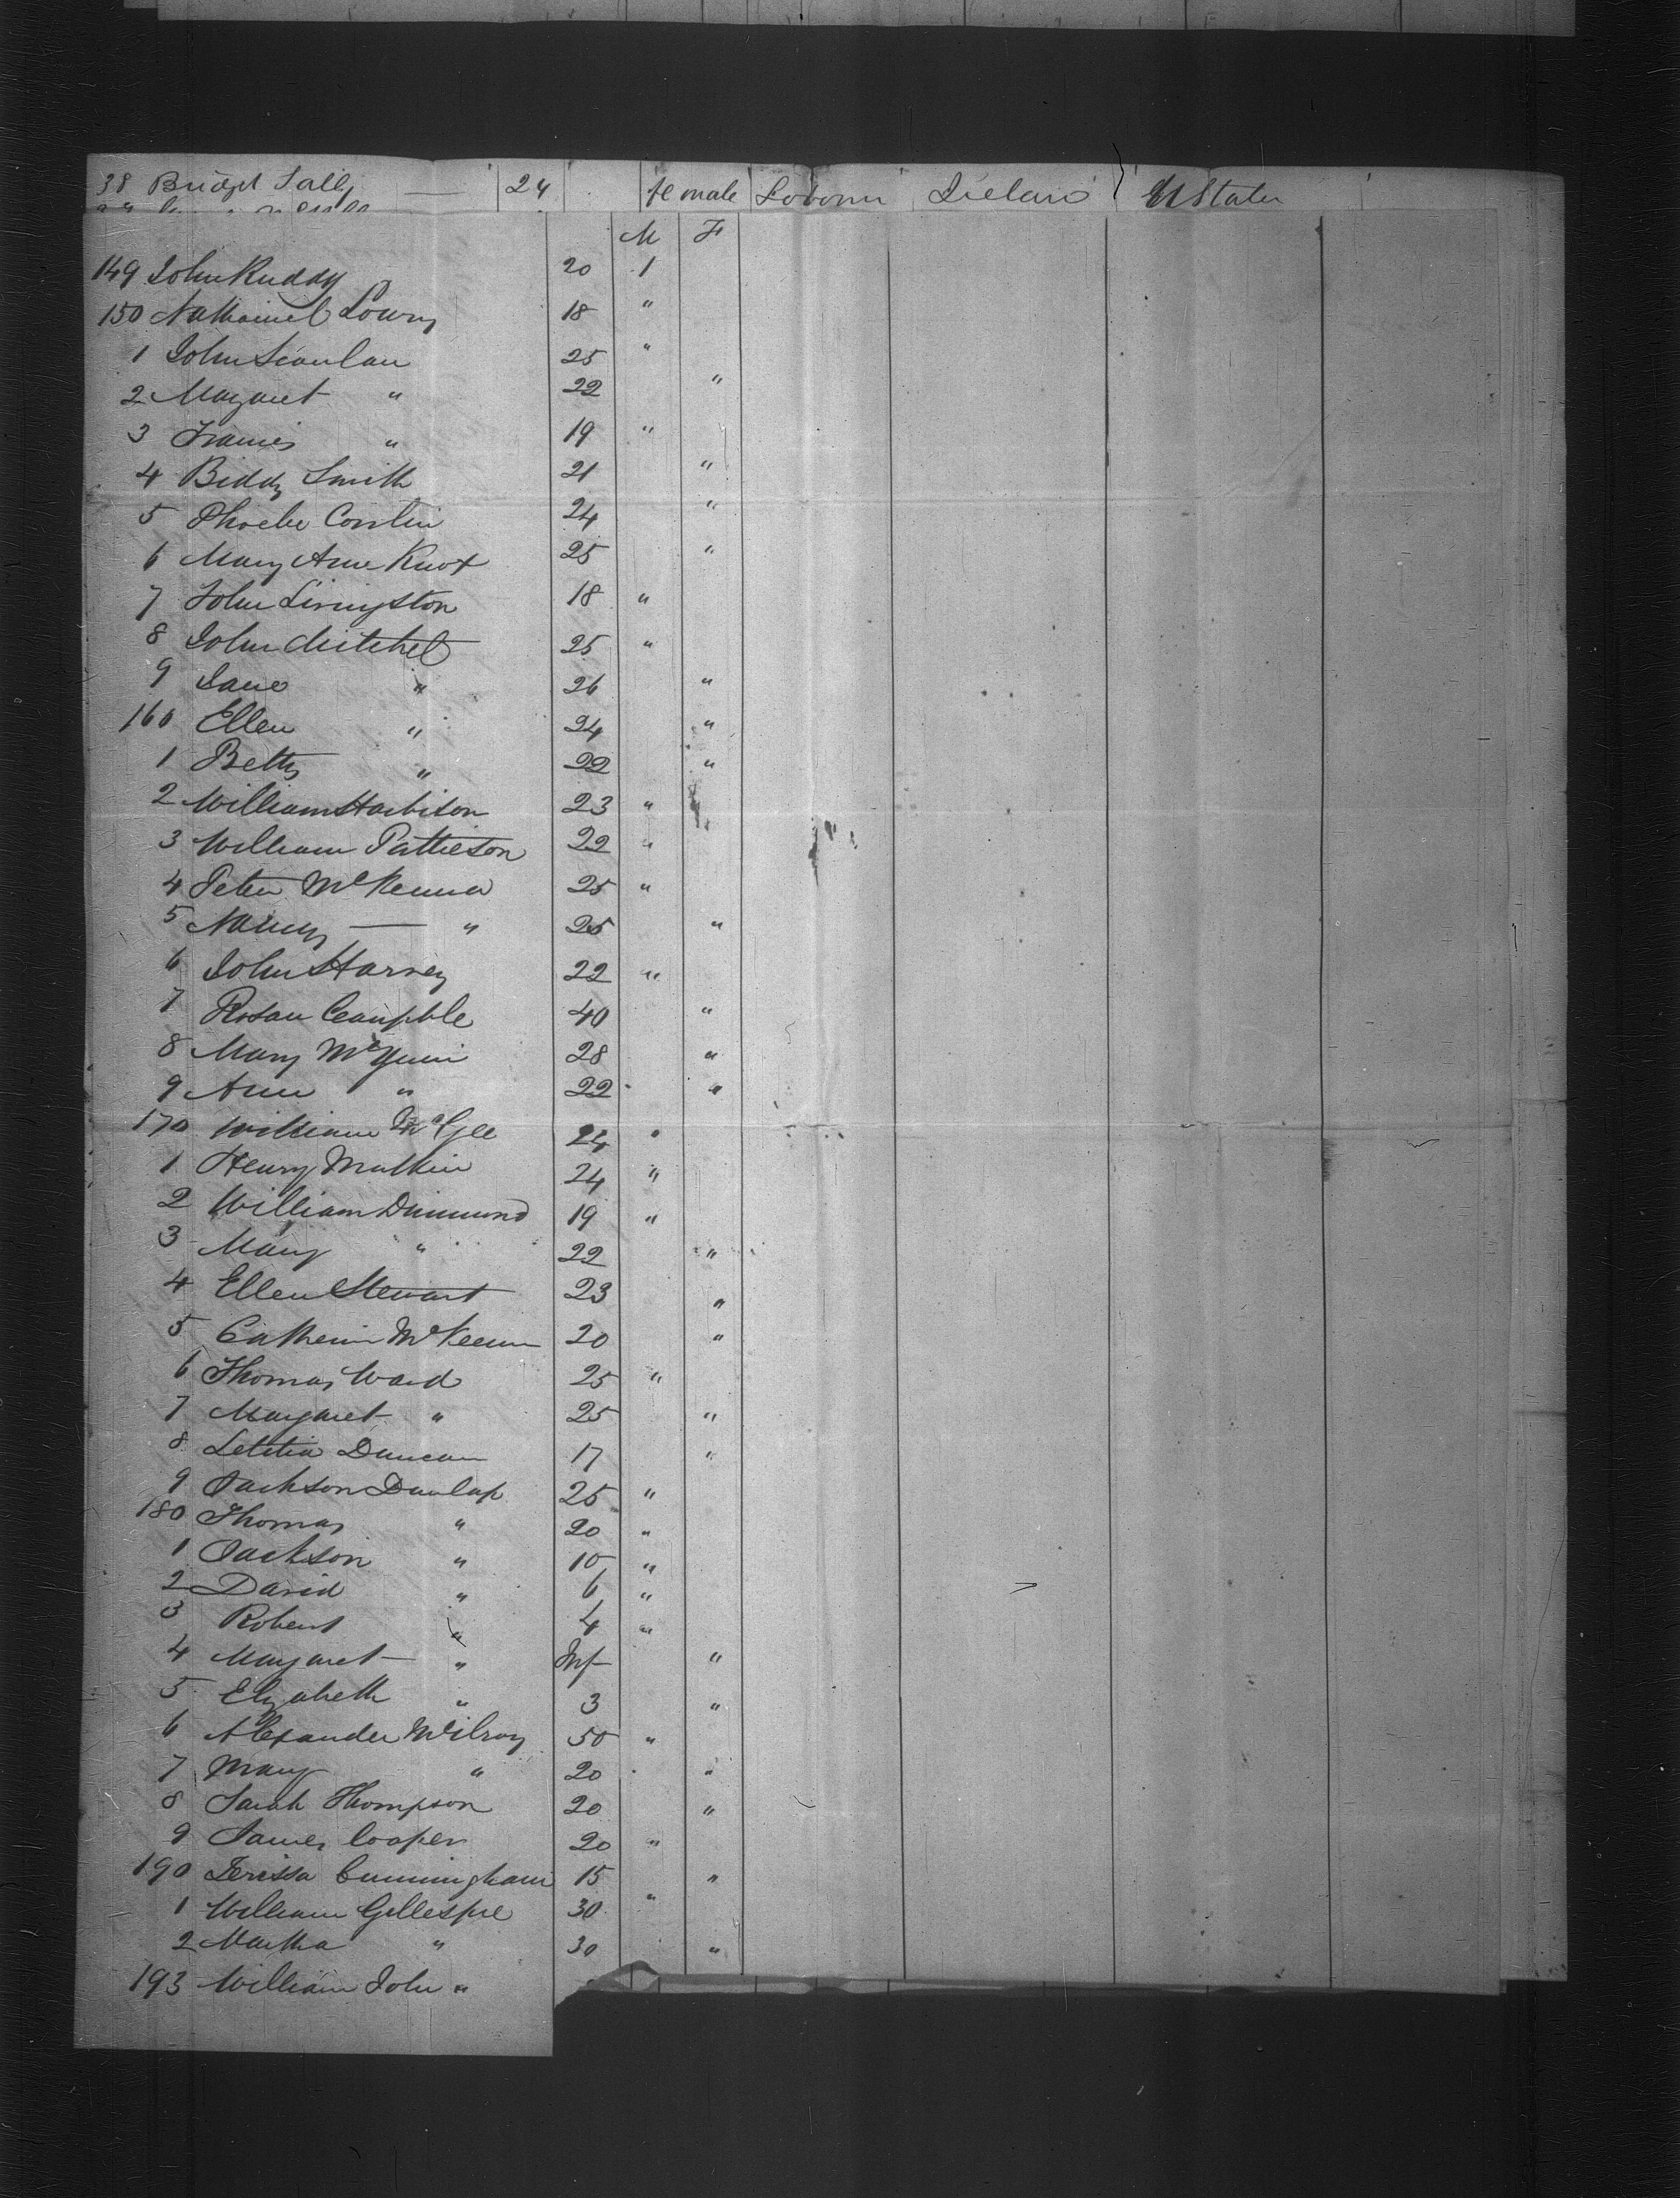 38 Bridget Lally — 24 female Laborer Ireland U States
M F
149 John Ruddy 20 1
150 Nathaniel Lowry 18 "
1 John Scanlan 25 "
2 Margaret " 22 "
3 Francis " 19 "
4 Biddy Smith 21 "
5 Phoebe Conlin 24 "
6 Mary Ann Knox 25 "
7 John Livingston 18 "
8 John Mitchel 25 "
9 Jane " 26 "
160 Ellen " 24 "
1 Betty " 22 "
2 William Harbison 23 "
3 William Pattieson 22 "
4 Peter McKenna 25 "
5 Nancy — " 25 "
6 John Harvey 22 "
7 Rosan Campble 40 "
8 Mary McGuin 28 "
9 Ann " 22 "
170 William McGee 24 "
1 Henry Mulkin 24 "
2 William Dimmond 19 "
3 Mary " 22 "
4 Ellen Stewart 23 "
5 Catherin 20 "
6 Thomas Ward 25 "
7 Margaret " 25 "
8 Letitia Duncan 17 "
9 Jackson Dunlap 25 "
180 Thomas " 20 "
1 Jackson " 10 "
2 David " 6 "
3 Robert " 4 "
4 Margaret " Inf "
5 Elizabeth " 3 "
6 Alexander McIlroy 50 "
7 Mary " 20 "
8 Sarah Thompson 20 "
9 James Cooper 20 "
190 Cunningham 15 "
1 William Gillespie 30 "
2 Martha " 30 "
193 William John "